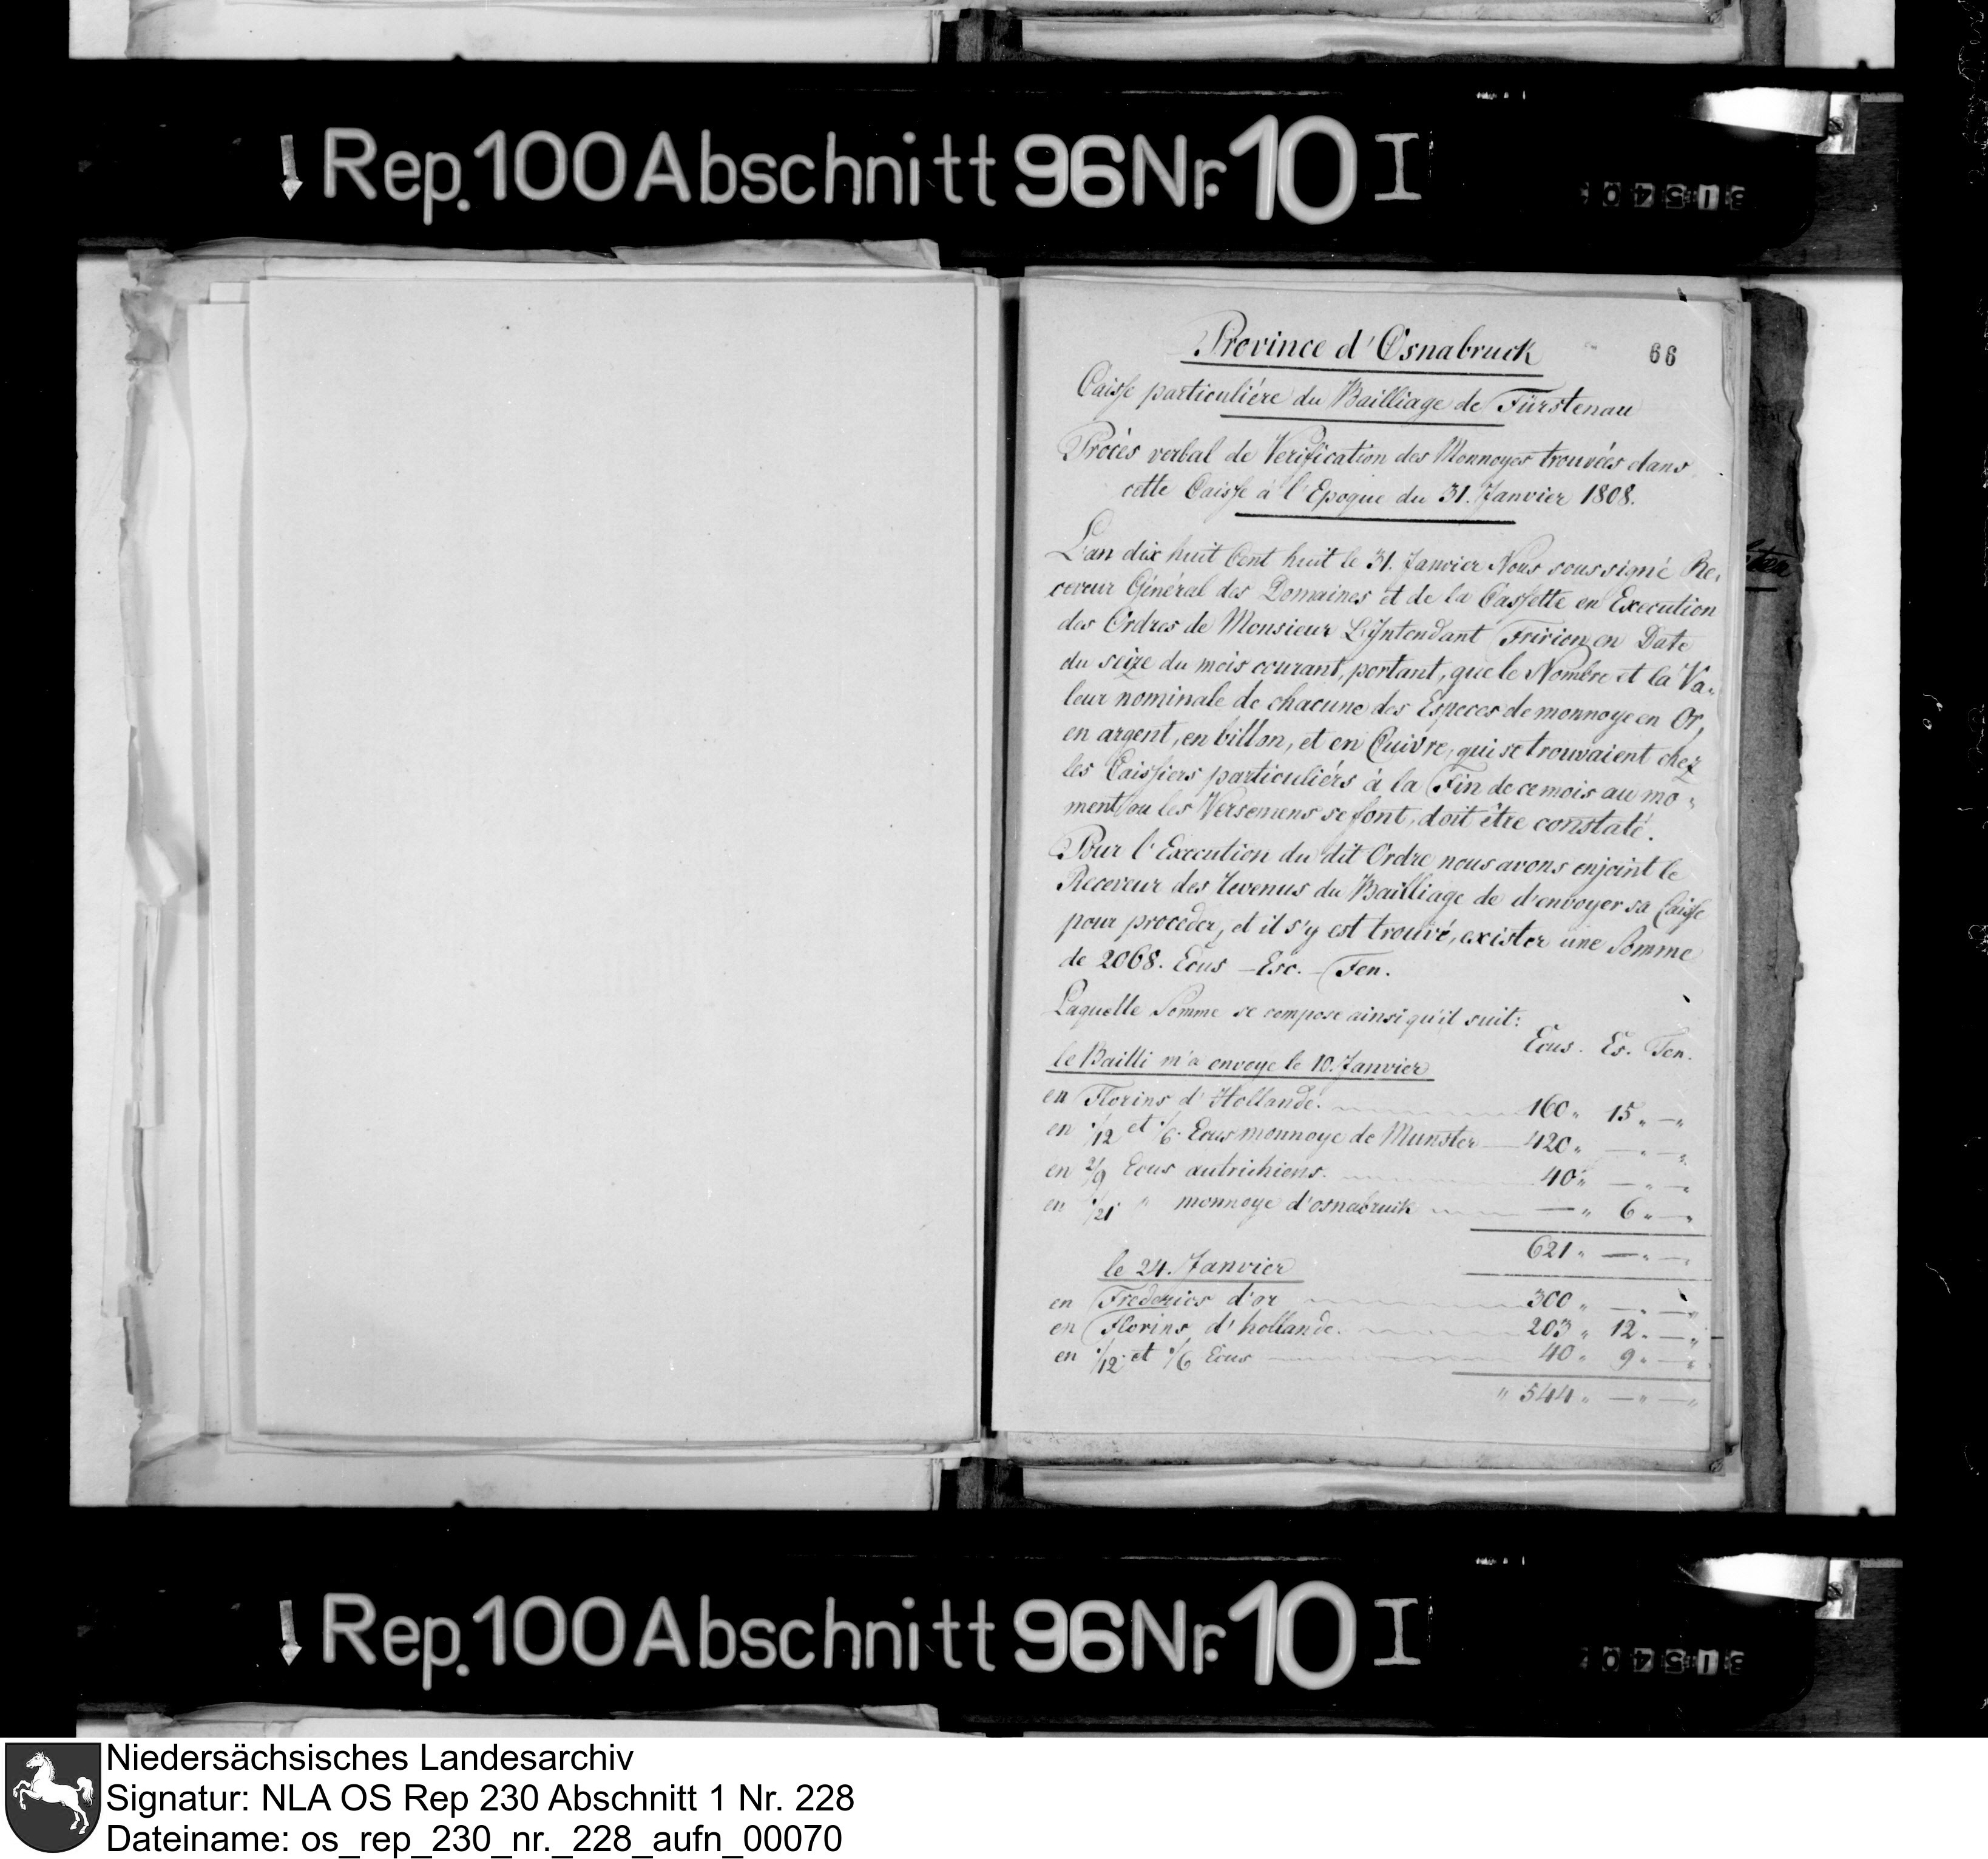 Rep. 100 Abschnitt 96 Nr. 10 I
Province d'Osnabruck
66
Caisse particuliére du Bailliage de Fürstenau
Procès verbal de Verification des Monnoyes trouvées dans
cette Caisse à l'Epoque du 31. Janvier 1808.
L'an dix huit Cent huit le 31. Janvier Nous soussigné Re-
ceveur Général des Domaines et de la Cassette en Execution
des Ordres de Monsieur L'Intendant Fririon en Date
du seize du mois courant, portant, que le Nombre et la Va-
leur nominale de chacune des Especes de monnoye en Or,
en argent, en billon, et en Cuivre, qui se trouvaient chez
les Caissiers particuliérs à la Fin de ce mois au mo-
ment ou les Versemens se font, doit être constaté.
Pour l'Execution du dit Ordre nous avons enjoint le
Receveur des Revenus du Bailliage de d'envoyer sa Caisse
pour proceder, et il s'y est trouvé, exister une Somme
de 2068. Ecus — Esc. — Fen.
Laquelle Somme se compose ainsi qu'il suit:
Ecus. Es. Fen.
le Bailli m'a envoye le 10. Janvier
en Florins d'Hollande. 160 „ 15 „ — „
en 1/12 et 1/6. Ecus monnoye de Munster — 420 „ — „ — „
en 2/9 Ecus autrichiens. 40 „ — „ — „
en 1/21 " monnoye d'osnabruck — „ 6 „ — „
621 „ — „ —
le 24. Janvier
en Frederics d'or 300 „ — „ — „
en Florins d'hollande. 203 „ 12 „ — „
en 1/12 et 1/6 Ecus 40 „ 9 „ — „
" 544 „ — „ — „
Rep. 100 Abschnitt 96 Nr. 10 I
Niedersächsisches Landesarchiv
Signatur: NLA OS Rep 230 Abschnitt 1 Nr. 228
Dateiname: os_rep_230_nr._228_aufn_00070